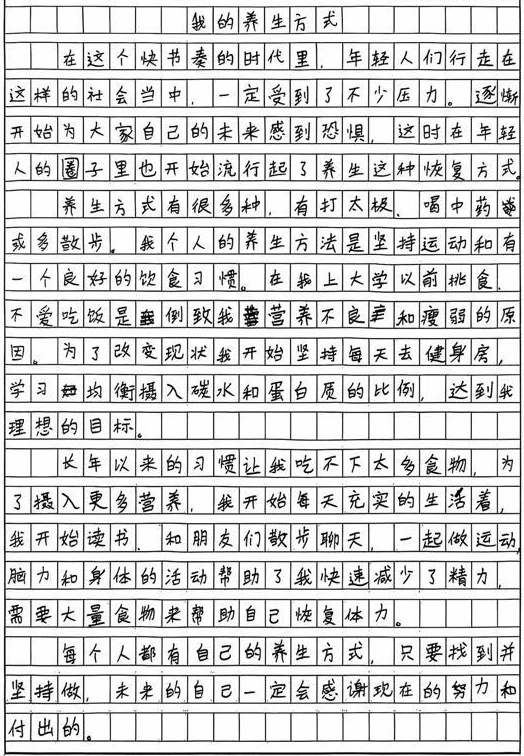 我的养生方式
在这个快节奏的时代里,年轻人们行走在
这样的社会当中,一定受到了不少压力。逐渐
开始为大家自己的未来感到恐惧,这时在年轻
人的圈子里也开始流行起了养生这种恢复方式。
养生方式有很多种,有打太极、喝中药
或多散步。我个人的养生方法是坚持运动和有
一个良好的饮食习惯。在我上大学以前挑食、
不爱吃饭是倒致我营养不良和瘦弱的原
因。为了改变现状我开始坚持每天去健身房,
学习均衡摄入碳水和蛋白质的比例,达到我
理想的目标。
长年以来的习惯让我吃不下太多食物,为
了摄入更多营养,我开始每天充实的生活着,
我开始读书、和朋友们散步聊天,一起做运动,
脑力和身体的活动帮助了我快速减少了精力,
需要大量食物来帮助自己恢复体力。
每个人都有自己的养生方式,只要找到并
坚持做,未来的自己一定会感谢现在的努力和
付出的。